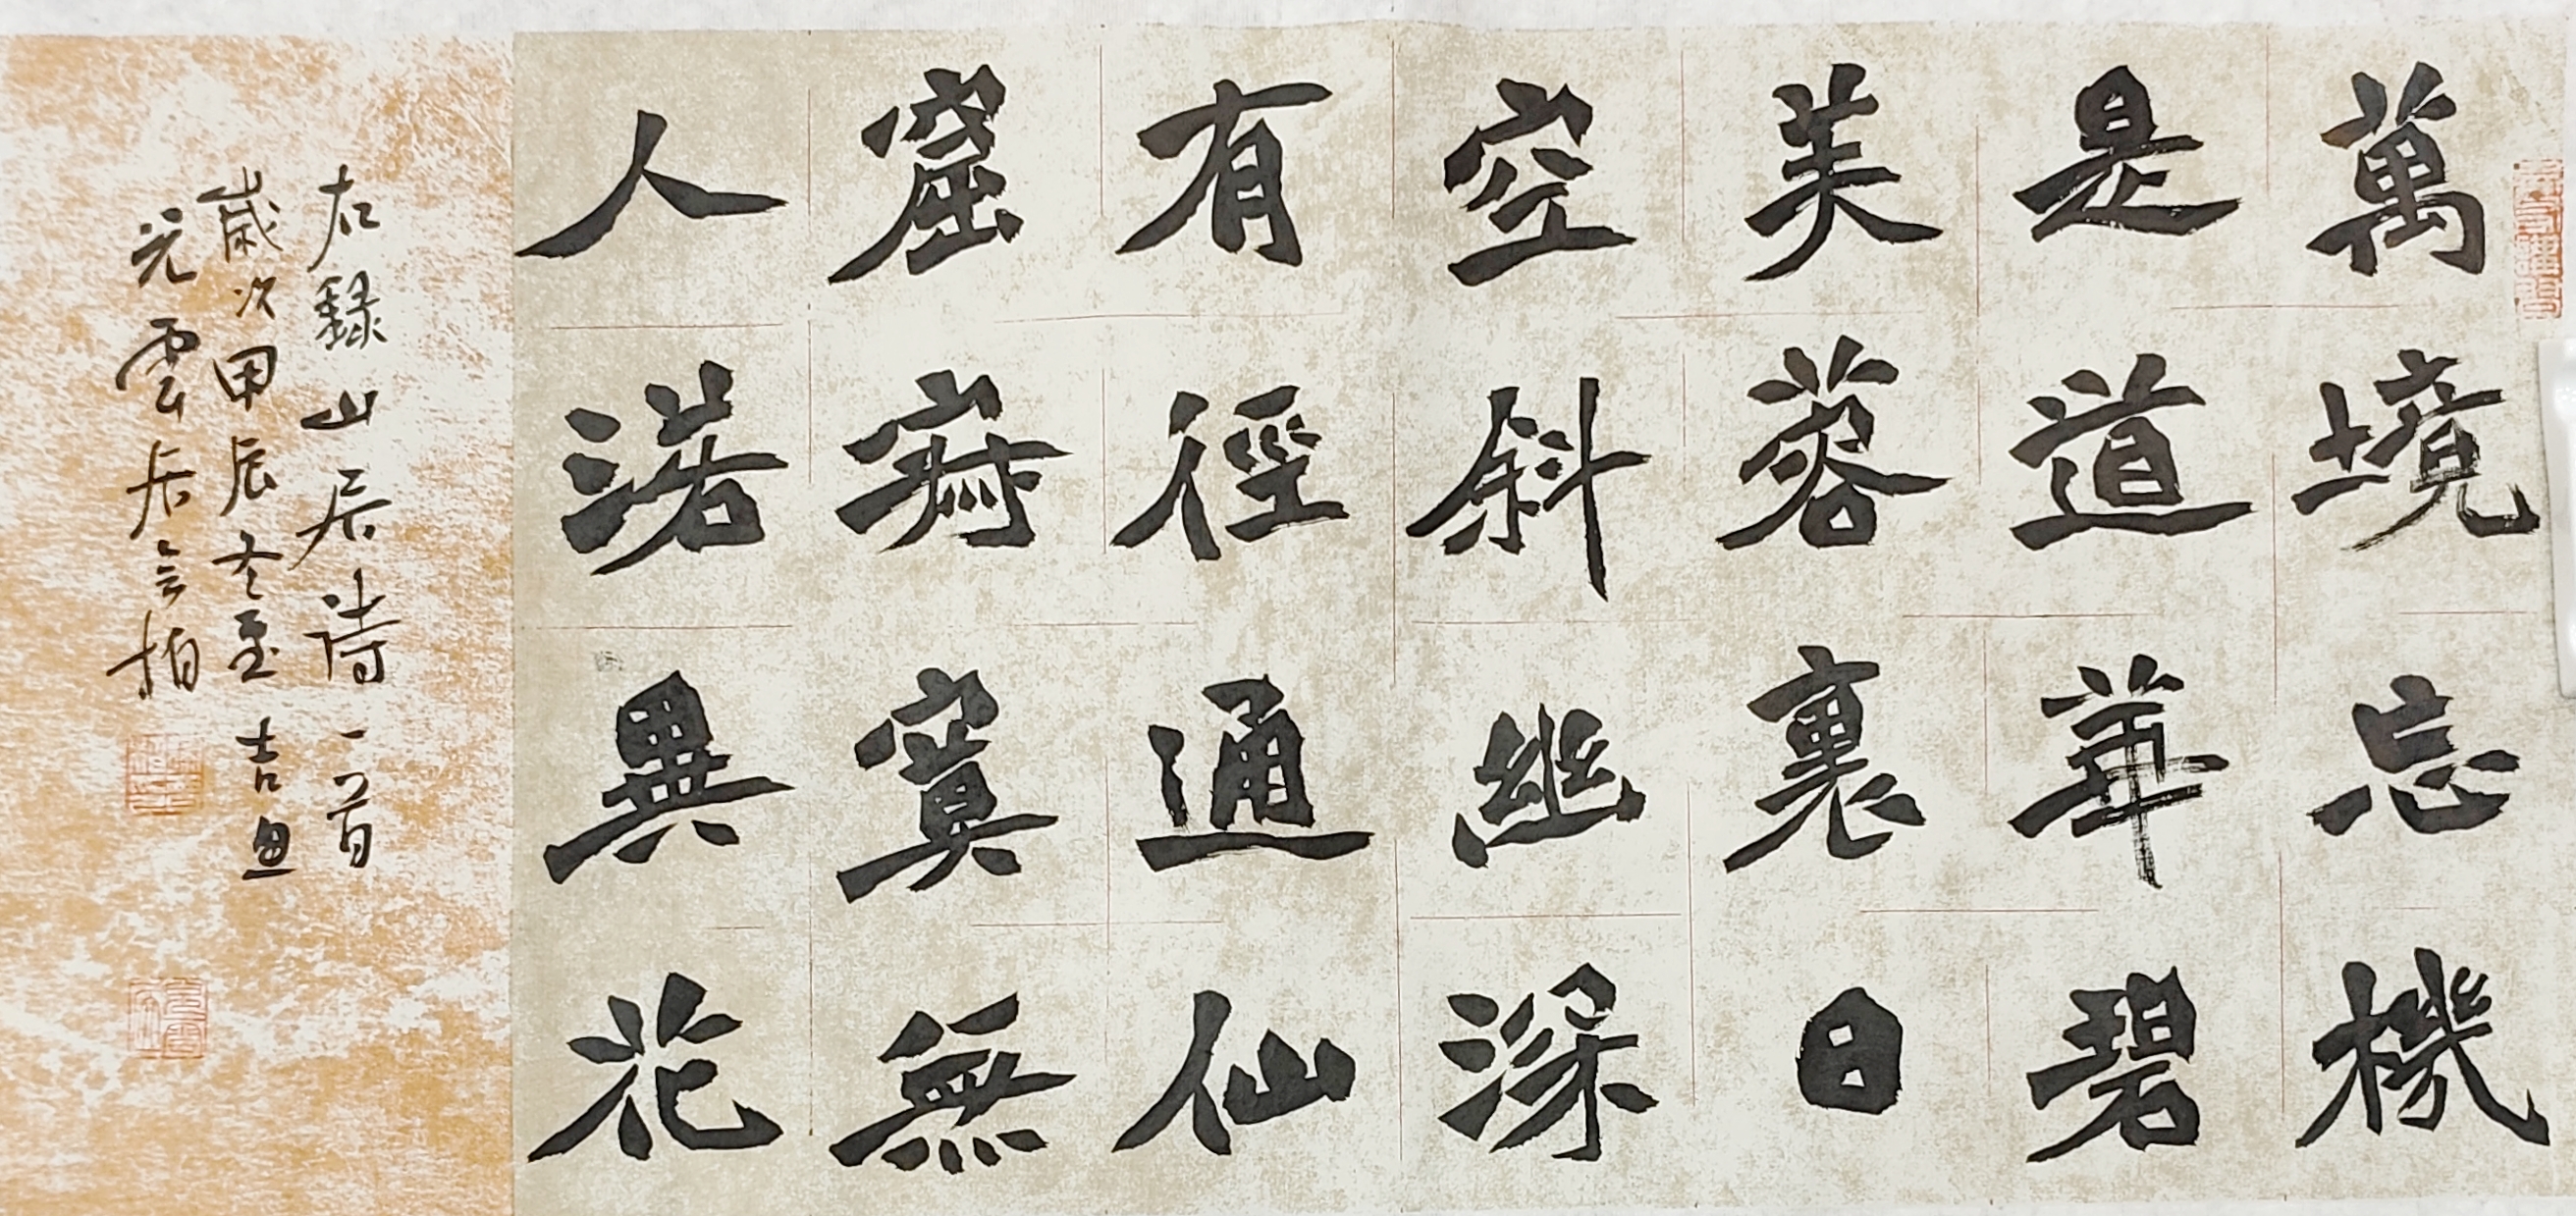 萬境忘機
是道華碧
芙蓉裏日
空斜幽深
有徑通仙
窟寂寞無
人落異花
右録山居詩一首
歲次甲辰冬至吉旦
元雲居會柏